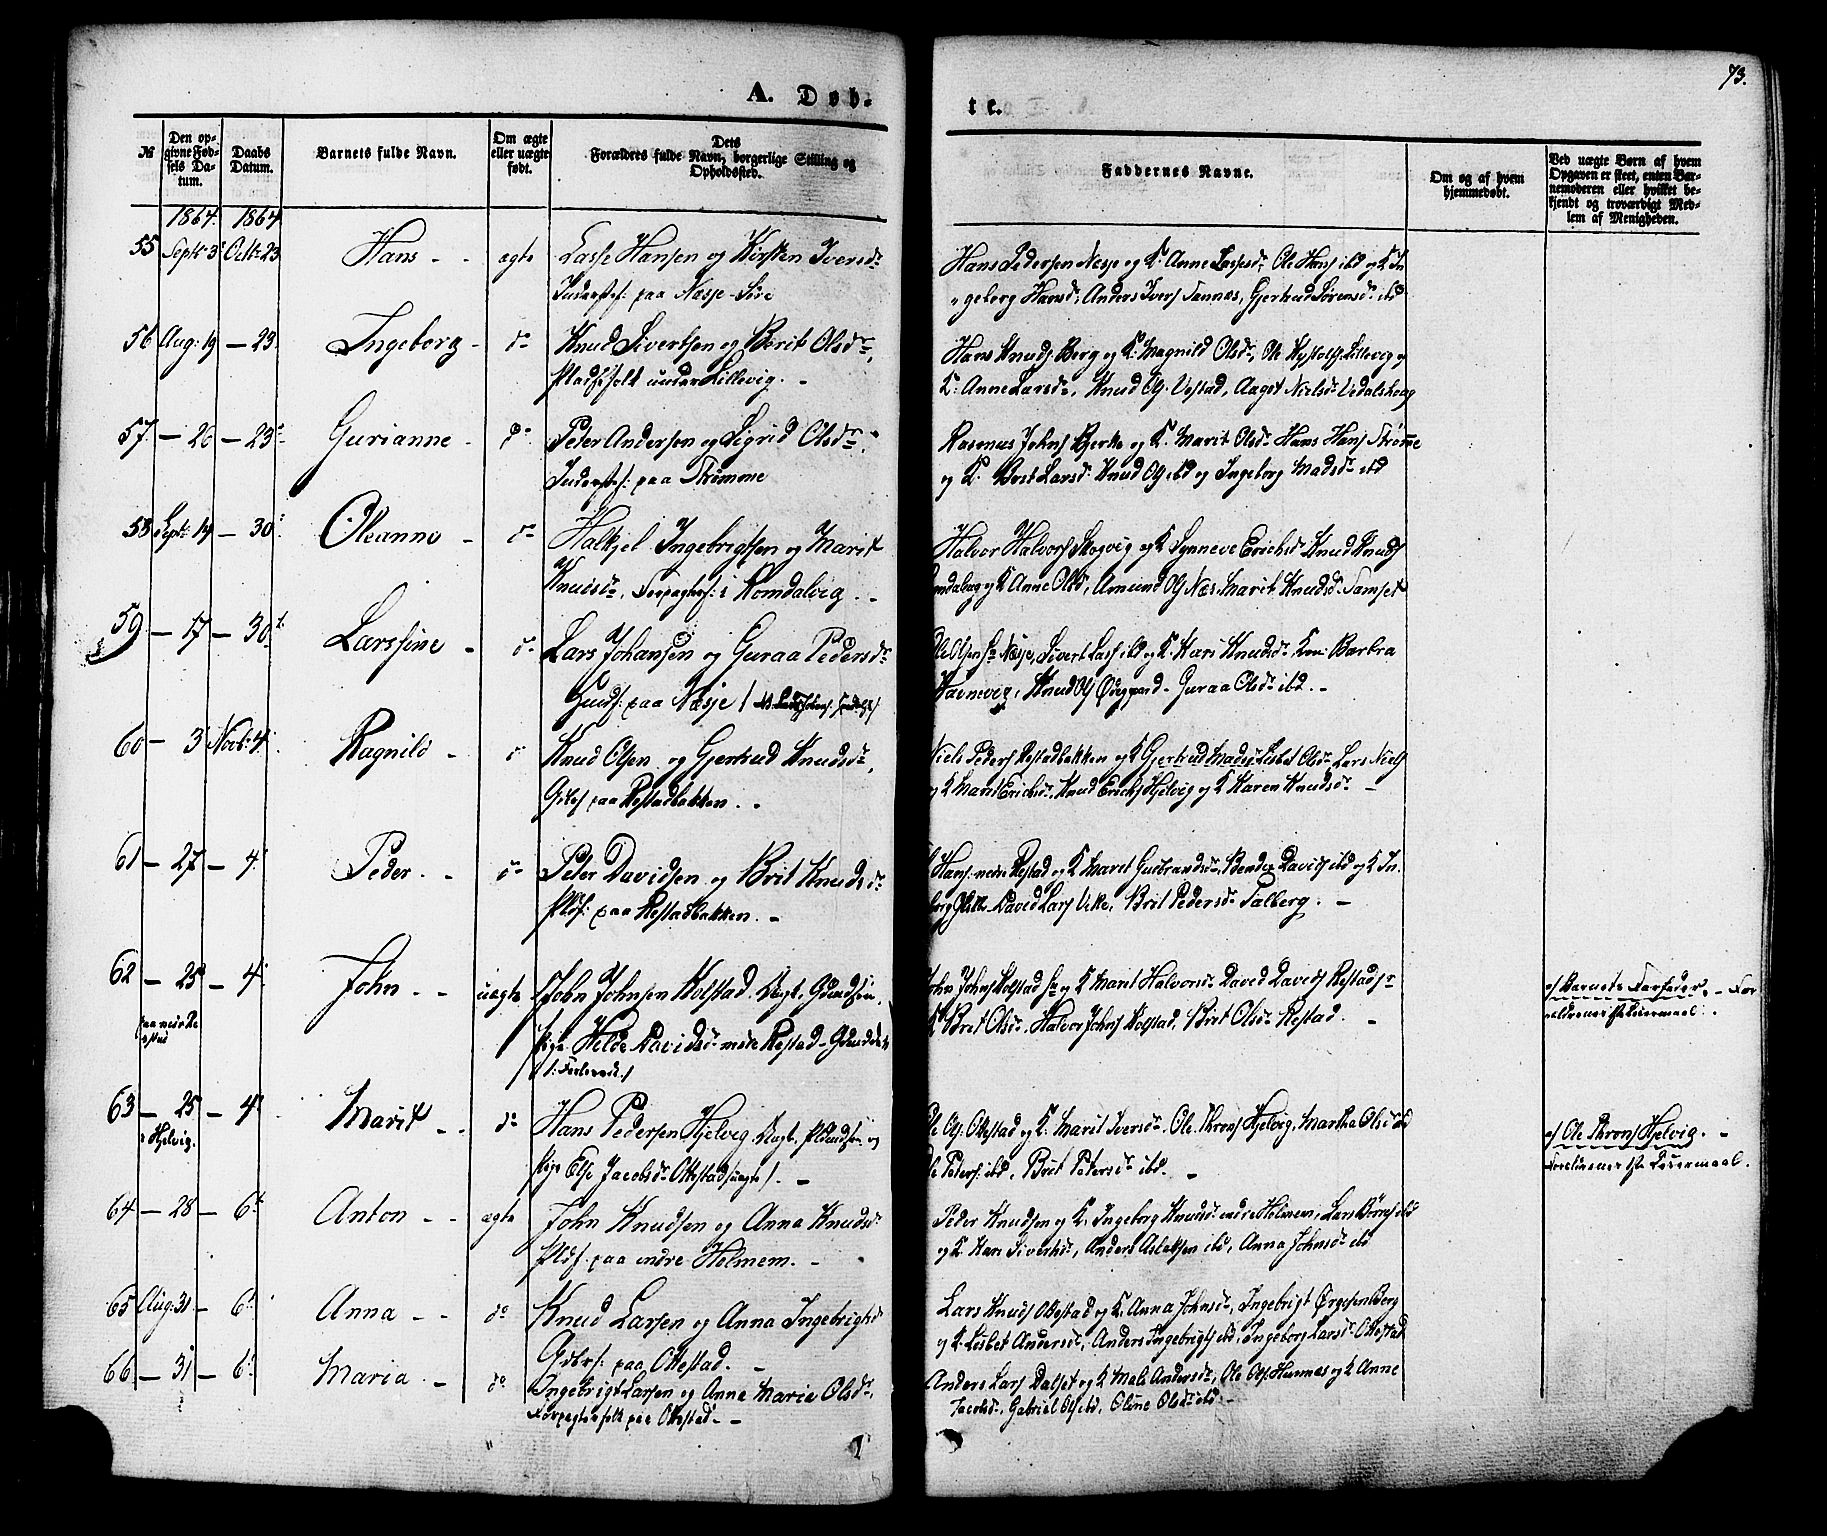 73.
A. Døb-
te.
№
Den opgivne Fødsels Datum.
Daabs Datum.
Barnets fulde Navn.
Om ægte eller uægte født.
Dets Forældres fulde Navn, borgerlige Stilling og Opholdssted.
Faddernes Navne.
Om og af hvem hjemmedøbt.
Ved uægte Børn af hvem Opgaven er skeet, enten Barnemoderen eller hvilket bekjendt og troværdigt Medlem af Menigheden.
1864. 1864
55 Septr 3 Octr 23 Hans - - ægte Lasse Hansen og Kirsten Iversdr
Inderstf: paa Nesje-Søre
Hans Pedersen Nesje og K. Anne Lassesdr Ole Hans ibd og K In
"geborg Hansd, Anders Ivers Tannes, Gjertrud Sørensdr ibd
56 Aug: 19 - 23. Ingeborg - do Knud Sivertsen og Berit Olsdr,
Pladsfolk under Lillevig. -
Hans Knuds. Berg og K: Magnild Olsdr, Ole Lillevig og
K. Anne Larsdr, Knud Ols. Vestad, Aagot Nielsdr Vedalshoug
57. - 26 - 23 Gurianne - do Peder Andersen og Sigrid Olsdr,
Inderstf: paa Strømme
Rasmus Johns Bjerke og K. Marit Olsdr Hans Hans Strømme
og K. Brit Larsd: Knud Ols ibd og Ingeborg Madsdr ibd
58 Septr: 14 - 30 Oleanne - do Halkjel Ingebrigtsen og Marit
Knudsdr, Forpagterf: i Romdalvig. -
Halvor Halvors Skogvig og K Synneve Erichsdr Knud Knuds
og K Anne Olsd, Amund Ols Næs, Marit Knudsd. Tamset
59 - 17 - 30t Larssine - do Lars Johansen og Guraa Pedersdr
Gmdf: paa Næsje
Næsje, Sivert Lars ibd og K. Kari Knudsdr, Kone Barbra
Knud Ols Ødegaard - Guraa Olsdr ibd. -
60 - 3 Novbr. 4. Ragnild - do Knud Olsen og Gjertrud Knudsdr,
Gdbf paa Restadbakken. -
Niels Peders Restadbakken og K Gjertrud Madsdr Lisbet Olsdr Lars Niels
og K Marit Erichsdr, Knud Erichs Hjelvig og K Karen Knudsdr -
61 - 27 - 4. Peder. - do Peter Davidsen og Brit Knudsdr
Pldsf: paa Restadbakken. -
Hans nedre Restad og K Marit Gulbrandsdr, Bendix Davids ibd og K In
David Lars Vike, Brit Pedersdr Talberg. -
62 - 25 - 4. John - - uægte John Johnsen Kolstad, Ungk. Gdmdssøn,
paa nedre Restad
Pige Helde Davidsdr nedre Restad - Gdmddtr
/: Forlovede./
John Johns Kolstad og K Marit Halvorsdr David Davids Restad
K Bret Olsdr, Halvor Johns Kolstad, Birit Olsdr Restad. -
af Barnets Farfader. - For
ældrenes 1ste Leiermaal. -
63 - 25 - 4. Marit - - do Hans Pedersen Hjelvig, Ungk, Pldmdssøn. og
i Hjelvig.
Pige Else Jacobsdr Ottestad -
Ole Ols. Ottestad og K: Marit Iversdr, Ole Throns Hjelvig, Martha Olsdr ibd
Ole Peters ibd, Brit Petersdr ibd. -
af Ole Throns Hjelvig. -
Forældrenes 1ste Leiermaal.
64 - 28 - 6t Anton - - ægte John Knudsen og Anna Knudsdr
Pldsf: paa indre Holmem. -
Peder Knudsen og K. Ingeborg Knudsdr indre Holmem, Lars ibd
og K Kari Sivertsdr, Anders Aslaksen ibd, Anna Johnsdr ibd
65 Aug. 31 - 6t. Anna - - do Knud Larsen og Anna Ingebrigtsdr
Gdbrf: paa Ottestad. -
Lars Knuds Ottestad og K Anna Johnsdr, Ingebrigt Ørgesen Berg
og K Lisbet Andersdr, Anders Ingebrigts ibd, Ingeborg Larsdr Ottestad
66 - 31 - 6t Maria - do Ingebrigt Larsen og Anne Maria Olsdr,
Forpagterfolk paa Ottestad. -
Anders Lars Dalset og K Mali Andersdr, Ole Ols og K Anne
Jacobsdr, Gabriel Ols ibd, Oline Olsdr ibd. -